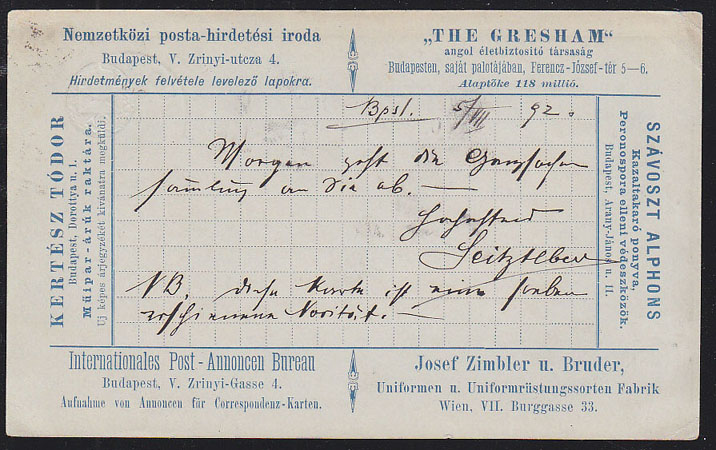 Nemzetközi posta-hirdetési iroda
Budapest, V. Zrinyi-utcza 4.
Hirdetmények felvétele levelező lapokra.
„THE GRESHAM“
angol életbiztositó társaság
Budapesten, saját palotájában, Ferencz-József-tér 5—6.
Alaptőke 118 millió.
KERTÉSZ TÓDOR
Budapest, Dorottya u. 1.
Műipar-árúk raktára.
Uj képes árjegyzékét kivánatra megküldi.
Bpst. 5/VII 92.
Morgen geht die Ganzsachen
sammlung an Sie ab. —
Hochachtend
NB. diese Karte ist eine soeben
erschienene Novität. —
SZÁVOSZT ALPHONS
Kazaltakaró ponyva,
Peronospora elleni védeszközök.
Budapest, Arany-János u. 11.
Internationales Post-Annoncen Bureau
Budapest, V. Zrinyi-Gasse 4.
Aufnahme von Annoncen für Correspondenz-Karten.
Josef Zimbler u. Bruder,
Uniformen u. Uniformrüstungssorten Fabrik
Wien, VII. Burggasse 33.